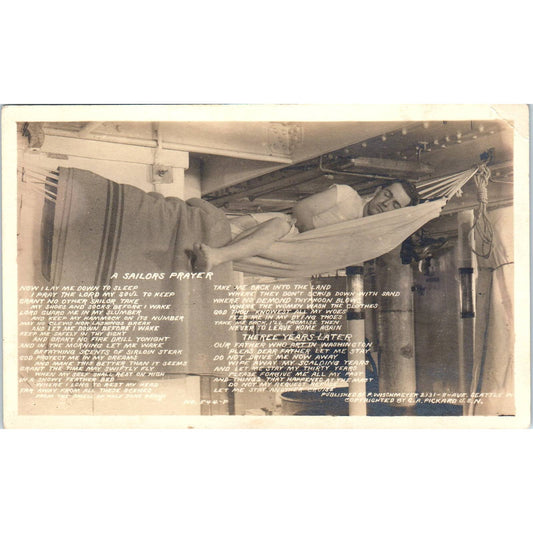 A SAILORS PRAYER
NOW I LAY ME DOWN TO SLEEP
I PRAY THE LORD MY SOUL TO KEEP
GRANT NO OTHER SAILOR TAKE
MY SHOES AND SOCKS BEFORE I WAKE
LORD GUARD ME IN MY SLUMBER
AND KEEP MY HAMMOCK ON ITS NUMBER
MAY NO CLEWS NOR LASHINGS BREAK
AND LET ME DOWN BEFORE I WAKE
KEEP ME SAFELY IN THY SIGHT
AND GRANT NO FIRE DRILL TONIGHT
AND IN THE MORNING LET ME WAKE
BREATHING SCENTS OF SIRLOIN STEAK
GOD PROTECT ME IN MY DREAMS
AND MAKE THIS BETTER THAN IT SEEMS
GRANT THE TIME MAY SWIFTLY FLY
WHEN MYSELF SHALL REST ON HIGH
IN A SNOWY FEATHER BED
WHERE I LONG TO REST MY HEAD
FAR AWAY FROM ALL THESE SCENES
FROM THE SMELL OF HALF DONE BEANS
TAKE ME BACK INTO THE LAND
WHERE THEY DON'T SCRUB DOWN WITH SAND
WHERE NO DEMOND TYPHOON BLOWS
WHERE THE WOMEN WASH THE CLOTHES
GOD THOU KNOWEST ALL MY WOES
FEED ME IN MY DYING THOES
TAKE ME BACK I'LL PROMISE THEN
NEVER TO LEAVE HOME AGAIN
THEREE YEARS LATER
OUR FATHER WHO ART IN WASHINGTON
PLEAS DEAR FATHER LET ME STAY
DO NOT DRIVE ME NOW AWAY
WIPE AWAY MY SCALDING TEARS
AND LET ME STAY MY THIRTY YEARS
PLEASE FORGIVE ME ALL MY PAST
AND THINGS THAT HAPPENED AT THE MAST
DO NOT MY REQUEST REFUSE
LET ME STAY ANOTHER CRUISE
NO. 544-P
PUBLISHED BY P. WISCHMEYER 2131-8TH AVE. SEATTLE
COPYRIGHTED BY C.A. PICKARD U.S.N.